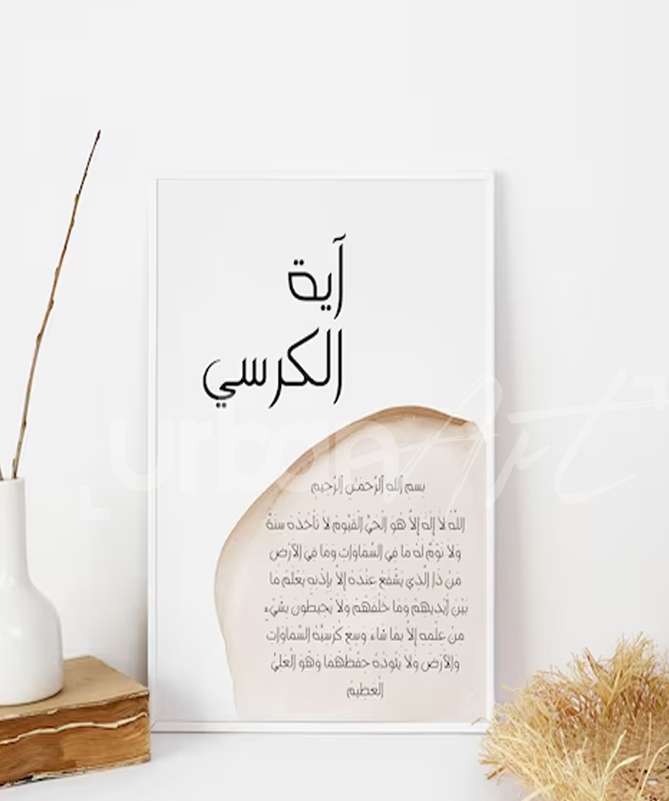 آية
الكرسي
urban Art
بسم الله الرَّحْمَٰنِ الرَّحِيم
اللَّهُ لَا إِلَهَ إِلَّا هُوَ الْحَيُّ الْقَيُّومُ لَا تَأْخُذُهُ سِنَةٌ
وَلَا نَوْمٌ لَهُ مَا فِي السَّمَاوَاتِ وَمَا فِي الْأَرْضِ
مَنْ ذَا الَّذِي يَشْفَعُ عِنْدَهُ إِلَّا بِإِذْنِهِ يَعْلَمُ مَا
بَيْنَ أَيْدِيهِمْ وَمَا خَلْفَهُمْ وَلَا يُحِيطُونَ بِشَيْءٍ
مِنْ عِلْمِهِ إِلَّا بِمَا شَاءَ وَسِعَ كُرْسِيُّهُ السَّمَاوَاتِ
وَالْأَرْضَ وَلَا يَئُودُهُ حِفْظُهُمَا وَهُوَ الْعَلِيُّ
الْعَظِيمُ